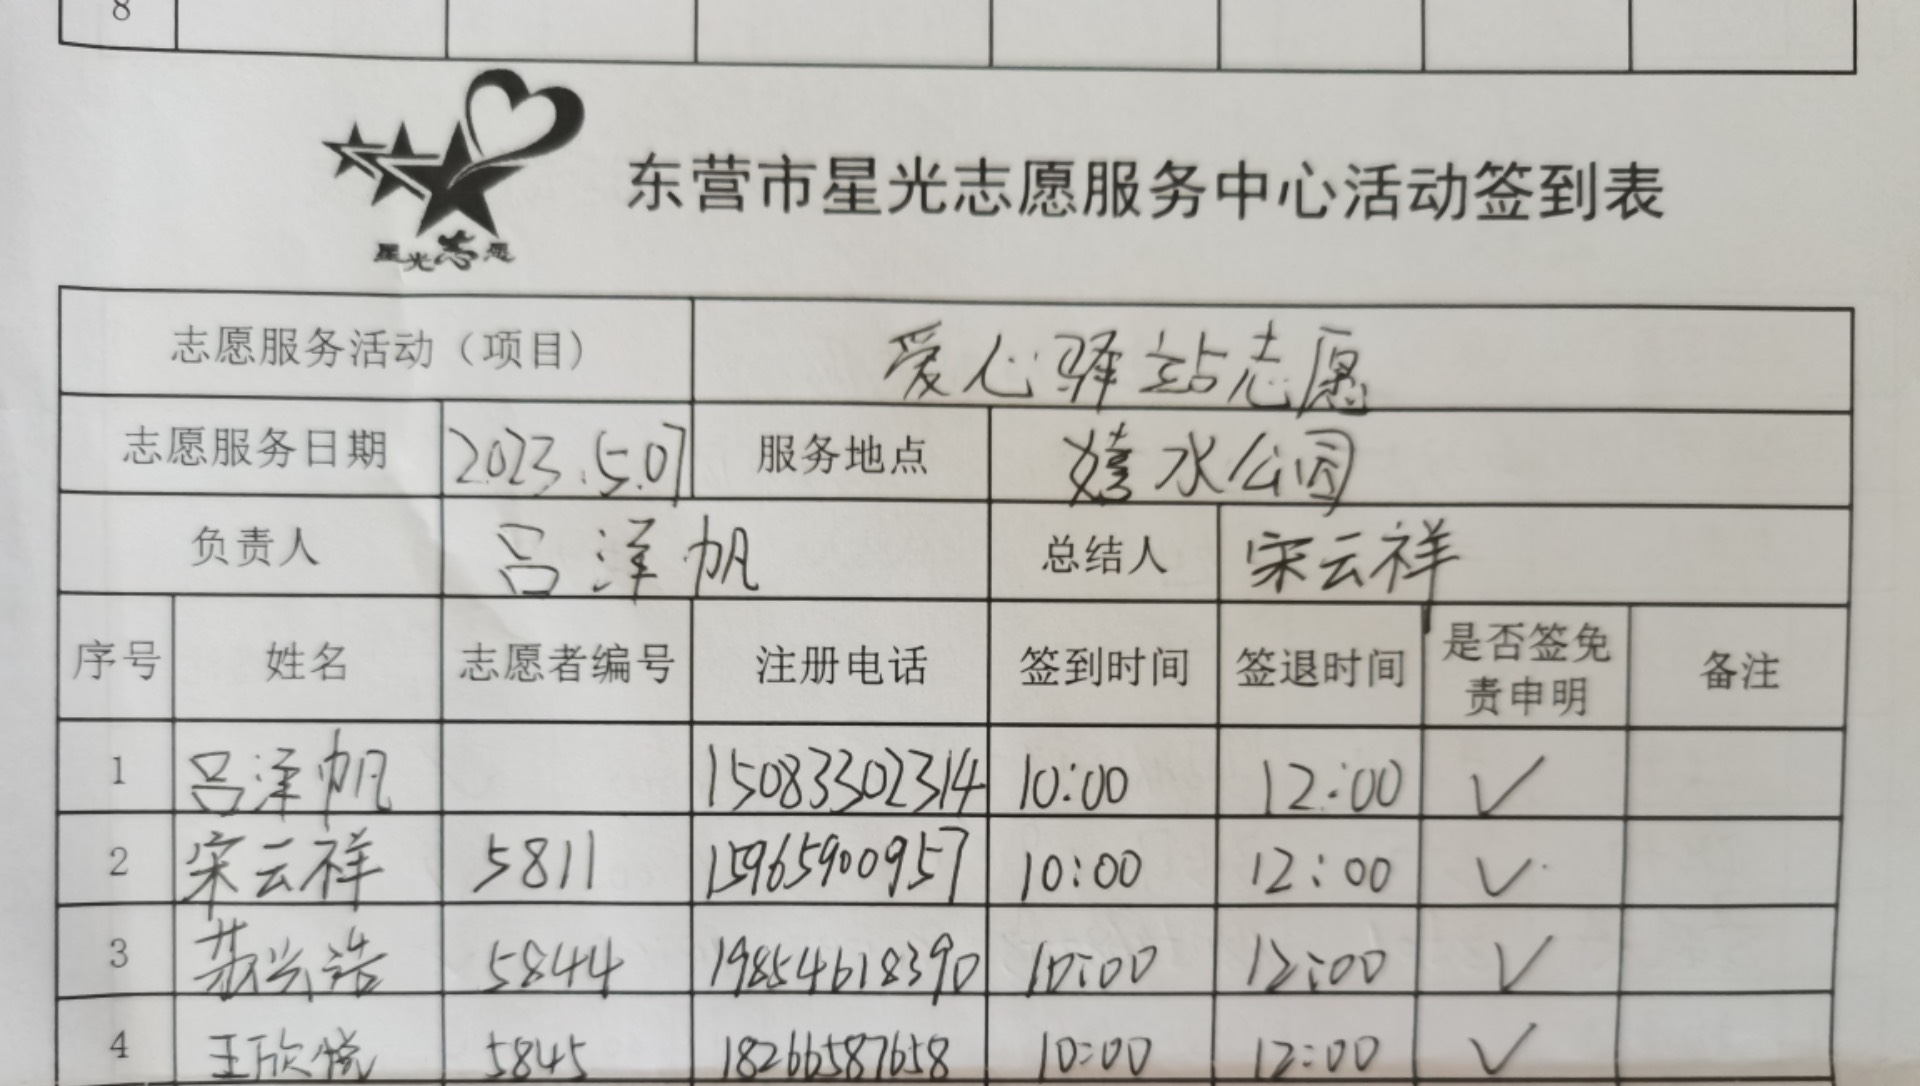 8
星光志愿
东营市星光志愿服务中心活动签到表
志愿服务活动（项目） 爱心驿站志愿
志愿服务日期 2023.5.07 服务地点 嬉水公园
负责人 吕泽帆 总结人 宋云祥
序号 姓名 志愿者编号 注册电话 签到时间 签退时间 是否签免责申明 备注
1 吕泽帆 15083302314 10:00 12:00 ✓
2 宋云祥 5811 15965900957 10:00 12:00 ✓
3 苏兴浩 5844 19854618390 10:00 12:00 ✓
4 王欣悦 5845 18266587658 10:00 12:00 ✓